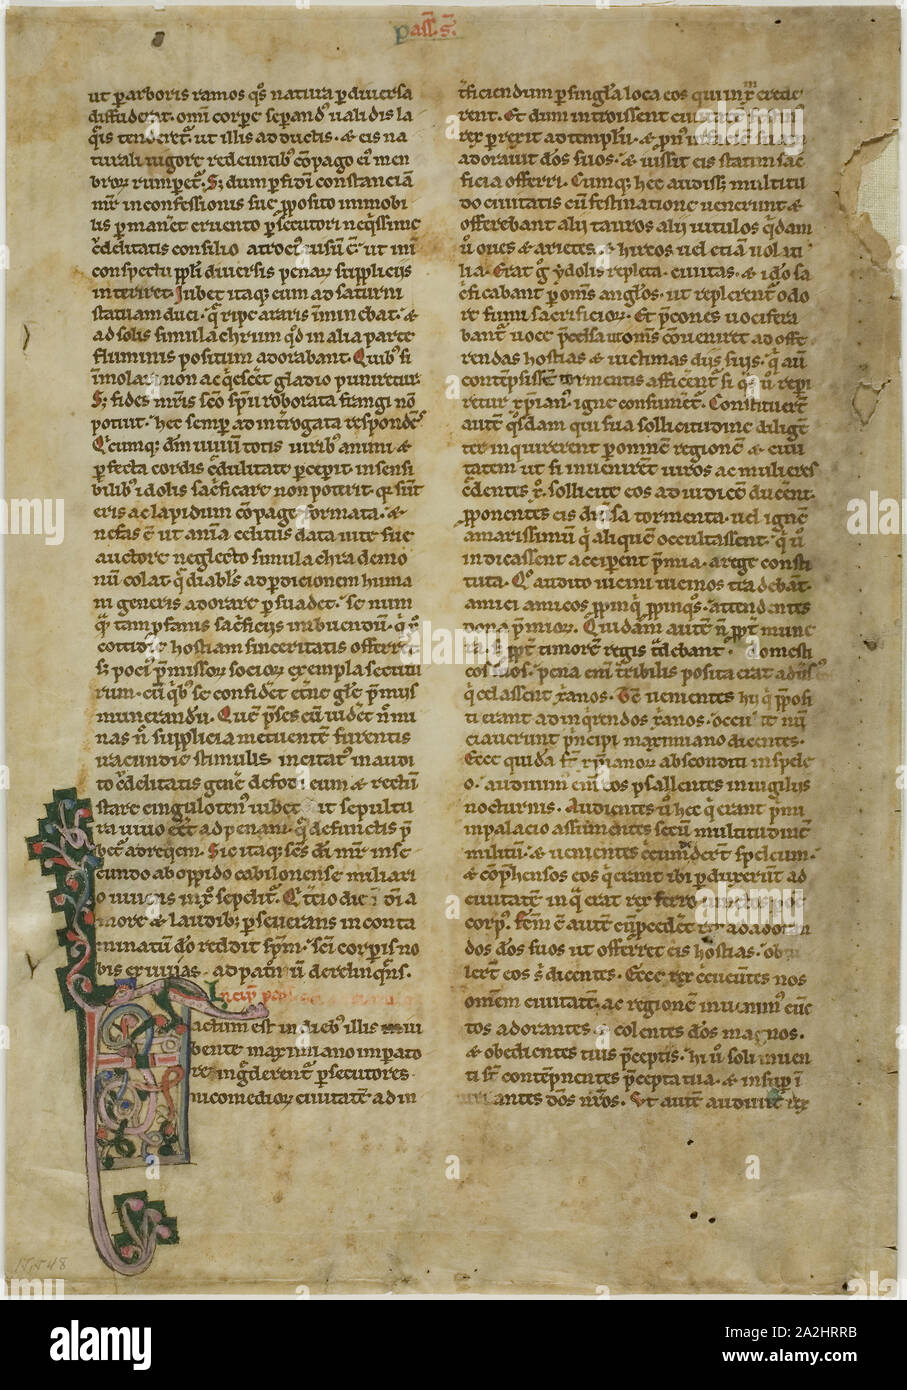 pass̄. s̄.
ut p̄ arboris ramos q̄s natura p̄ diuersa
diffuderat. om̄i corpe sepandus ualidis la
q̄is tenderet̄. ut illis abductis. & eis na
turali uigore redeuntib; cōpago ei mem
bror̄ rumpet̄. S; dum p̄ fidei constanciā
mr̄ in confessionis sue p̄posito immobi
lis p̄maneret
c̄delitatis consilio atroci us
conspectu ppl̄i diuersis penar̄ suppliciis
interiret. Iubet itaq; eum ad saturni
statuam duci. q̄ ripe araris īminebat. &
ad solis simulachrum q̄d in alia parte
fluminis positum adorabant. Quib; si
īmolare non acq̄esc̄et gladio puniretur
S; fides mr̄is sc̄o sp̄u roborata frangi nō
potuit. hec semp ad int̄rogata respondēs
Qicumq; dm̄ uiuum totis uirib; animi &
p̄fecta cordis c̄dulitate p̄cepit. insensi
bilib; idolis sac̄ficare non poterit. q̄ sunt
eris ac lapidum cōpage formata. &
nefas ē ut anīa celitus data uite sue
auctore neglecto simulachra demo
nū colat. q̄ diabl̄s ad p̄dicionem huma
ni generis adorare p̄suadet. Se num
q̄ tam p̄fanis sac̄ficiis imbuendū. q̄
cottidie hostiam sinceritatis offerret
S; poci p̄missor̄ socior̄ exempla sectutu
rum. cū q̄b; se confidet et̄ne gl̄e p̄miis
munerandū. Que p̄ses cū uidet̄ n̄ mi
nas n̄ supplicia metuente furentis
iracundie stimulis incitat; inaudi
to c̄delitatis gen̄e defodi eum & rectū
stare cingulo ten; iubet ut sepultu
ra uiuo e̅et ad penam. q̄ defunctis p̄
bet̄ ad requiem. Sic itaq; sc̄s dī mr̄ in se
cundo ab oppido cabilonense miliari
o uiuens in x̄po sepelit̄. Q; t̄cio die ī dī a
more & laudib; p̄seuerans in conta
minatum dō reddit sp̄m. sc̄i corpis no
bis exuuias ad pat̄m ū derelinq̄ns.
Factum est in dieb; illis
bente maximiano imp̄ato
re inḡderent̄ p̄secutores
nicomedior̄ ciuitatē ad in
t̄ficiendum p̄ singl̄a loca eos qui in x̄m crede
rent. Et dum introissent ciuitatē
rex p̄rexit ad templū. &
adorauit dōs suos. & iussit eis statim sac̄
ficia offerri. Cumq; hec audiss; multitu
do ciuitatis cū festinatione uenerunt &
offerebant alii tauros alii uitulos q̄dam
ū oues & arietes. & hircos uel etiā uolati
lia. Erat ḡ ydolis repleta ciuitas. & ido sa
c̄ficabant p̄ om̄s anglōs. ut replerent̄ odo
re fumi sacrificior̄. Et p̄cones uocifera
bant̄ uoce p̄celsa ut om̄s cōuenirēt ad offe
rendas hostias & uictimas diis suis. q̄ aū
contēpsissēt tormentis afficēnt̄. si q̄s ū repi
retur x̄pian; igne consumēt̄. Constituerūt
autē q̄sdam qui sua sollicitudine diligēt
ter inquirerent p̄ omnē regionē & ciui
tatem ut si inuenirēt uiros ac mulieres
c̄dentes x̄o. sollicite eos ad iudicē ducēnt.
p̄ponentes eis diūsa tormenta. uel ignē
amarissimū q̄ aliquē occultassent. q̄ ū
indicassent acciperent p̄mia. a rege consti
tuta. Q; audito uicini uicinos t̄debāt.
amici amicos ppinq̄ ppinq̄os. attendentes
dona p̄mior̄. Quidam autē n̄ ppt̄ mune
ra. s; ppt̄ timorē regis t̄debant domesti
cos suos. pena enī t̄ribilis posita erat adūsus
q̄ celassent x̄anos. Uenientes hii q̄ p̄posi
ti erant ad inq̄rendos x̄anos.
ciauerunt p̄ncipi maximiano dicentes.
Ecce quidā st̄ x̄pianor̄ absconditi in spele
o. audiuim; enī eos psallentes in uigiliis
nocturnis. Audientes ū hec q̄ erant p̄mi
in palacio assūmentes secū multitudinē
militū. & uenientes c̄cumdeder̄t speleum.
& cōp̄hensos eos q̄ erant ibi p̄duxerūt ad
ciuitatē in q̄ erat rex ferro uinctos
corp̄. Factum ē autē cū p̄cederet rex ad adoran
dos dōs suos ut offerret eis hostias
lert̄ eos dicentes. Ecce rex eeuntes nos
omem ciuitatē. ac regionē inuenim; cūc
tos adorantes & colentes dōs magnos.
& obedientes tuis p̄ceptis. hi ū soli inuen
ti st̄ contēpnentes p̄cepta tua. & insup ī
antes dōs nr̄os. Ut autē audiuit rex
alamy
Image ID: 2A2HRRB
www.alamy.com